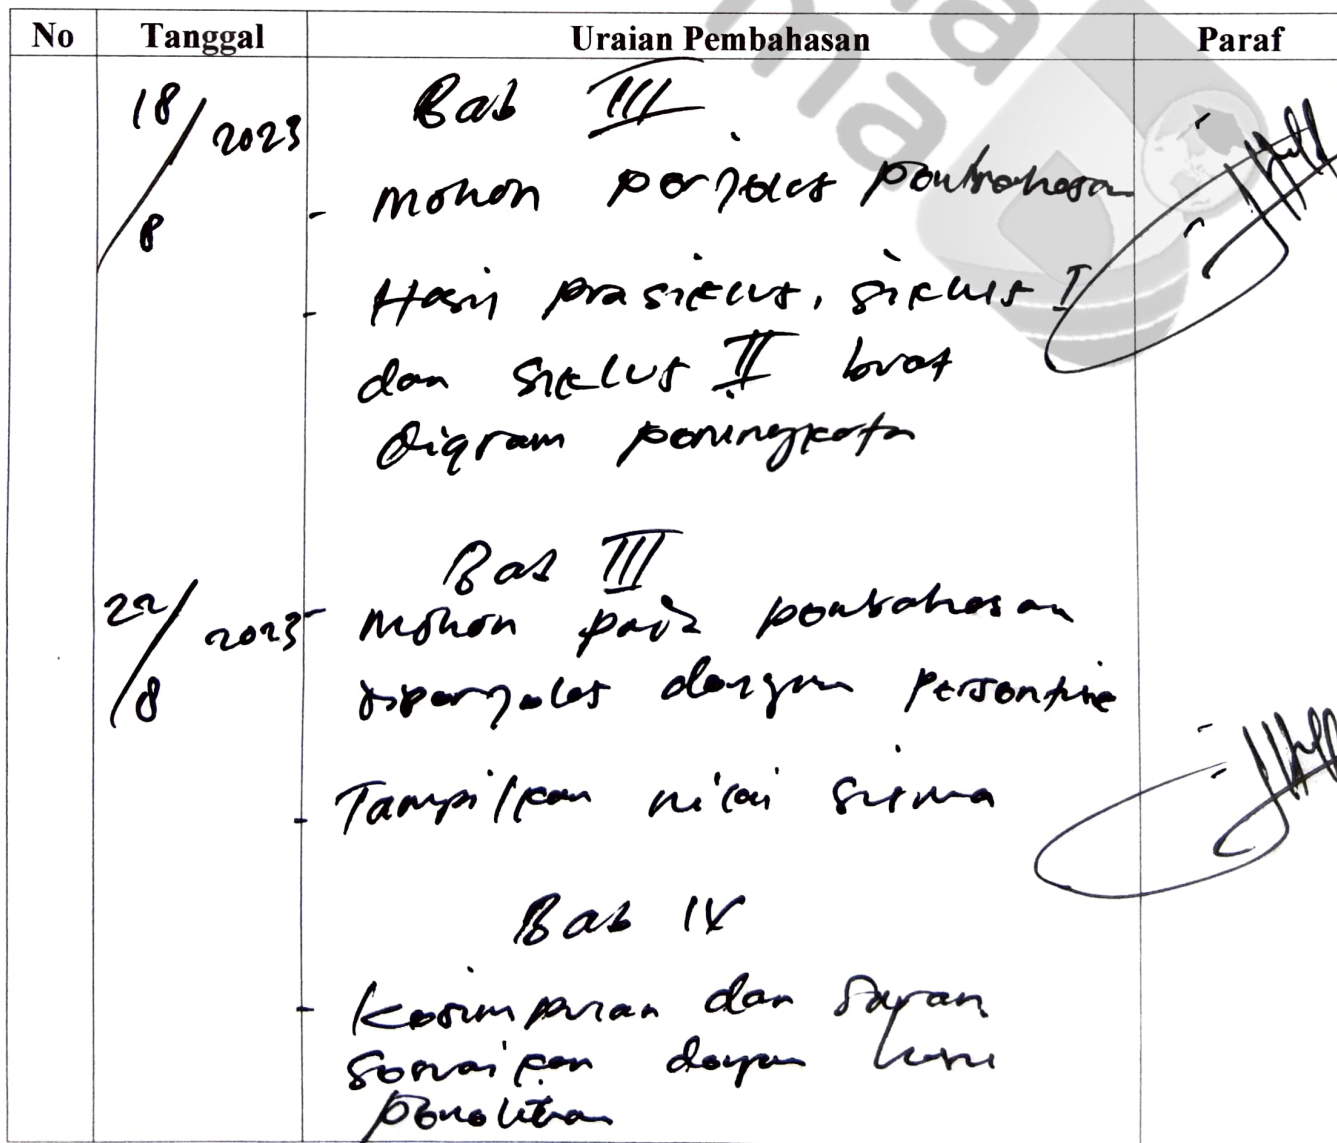 No Tanggal Uraian Pembahasan Paraf
18/8 2023 Bab III
- Mohon perjelas pembahasan
- Hasil prasiklus, siklus I
dan siklus II buat
digram peningkatan
Bab III
22/8 2023 - Mohon pada pembahasan
diperjelas dengan persentase
- Tampilkan nilai siswa
Bab IV
- Kesimpulan dan saran
sesuaikan dengan hasil
penelitian